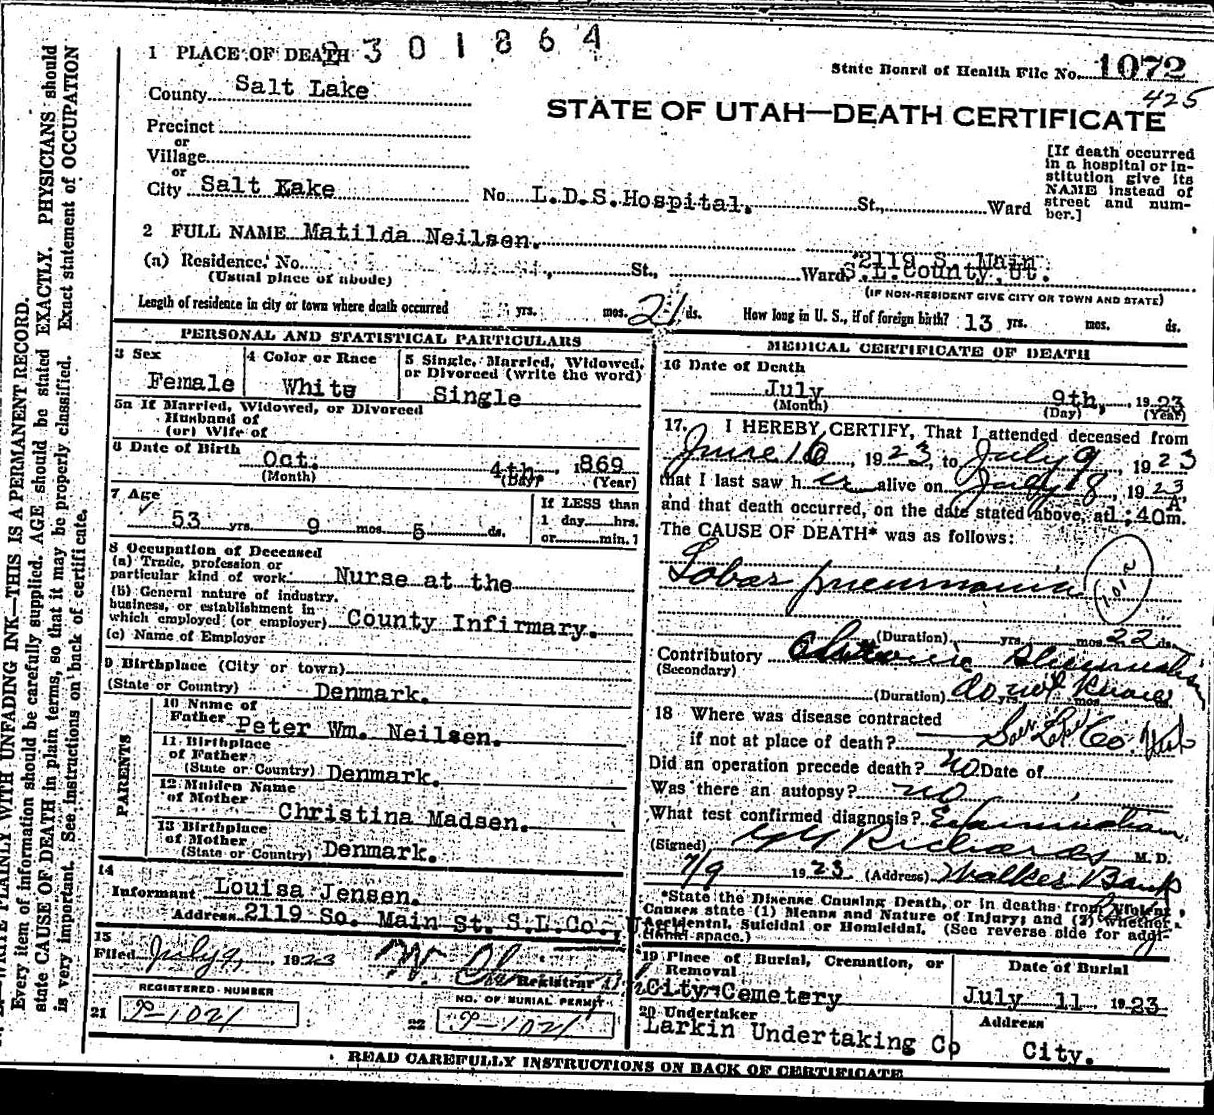 2301864
State Board of Health File No. 1072
425
1 PLACE OF DEATH
County Salt Lake
STATE OF UTAH—DEATH CERTIFICATE
Precinct
or
Village
or
City Salt Kake No. L.D.S.Hospital. St., Ward
[If death occurred in a hospital or institution give its NAME instead of street and number.]
2 FULL NAME Matilda Neilsen.
(a) Residence. No. St., Ward 2119 S. Main S.L.County, Ut.
(Usual place of abode) (IF NON-RESIDENT GIVE CITY OR TOWN AND STATE)
Length of residence in city or town where death occurred yrs. mos. 21 ds. How long in U. S., if of foreign birth? 13 yrs. mos. ds.
PERSONAL AND STATISTICAL PARTICULARS
3 Sex Female
4 Color or Race White
5 Single, Married, Widowed, or Divorced (write the word) Single
5a If Married, Widowed, or Divorced
Husband of
(or) Wife of
6 Date of Birth Oct. 4th, 1869
(Month) (Day) (Year)
7 Age 53 yrs. 9 mos. 5 ds.
If LESS than
1 day hrs.
or min.?
8 Occupation of Deceased
(a) Trade, profession or particular kind of work Nurse at the
(b) General nature of industry, business, or establishment in which employed (or employer) County Infirmary.
(c) Name of Employer
9 Birthplace (City or town)
(State or Country) Denmark.
PARENTS
10 Name of Father Peter Wm. Neilsen.
11 Birthplace of Father (State or Country) Denmark.
12 Maiden Name of Mother Christina Madsen.
13 Birthplace of Mother (State or Country) Denmark.
14
Informant Louisa Jensen.
Address 2119 So. Main St. S.L.Co., U
15
Filed July 9, 1923 W. Registrar
REGISTERED NUMBER
21 P-1021
NO. OF BURIAL PERMIT
22 P-1021
MEDICAL CERTIFICATE OF DEATH
16 Date of Death
July 9th, 1923
(Month) (Day) (Year)
17. I HEREBY CERTIFY, That I attended deceased from
June 16, 1923, to July 9, 1923
that I last saw her alive on July 8, 1923,
and that death occurred, on the date stated above, at 1:40 A m.
The CAUSE OF DEATH* was as follows:
Lobar pneumonia
(Duration) yrs. mos. 22 ds.
Contributory Chronic Rheumatism
(Secondary) (Duration) do not know
18 Where was disease contracted
if not at place of death? Salt Lake Co. Utah
Did an operation precede death? no Date of
Was there an autopsy? no
What test confirmed diagnosis? Examination
(Signed) Richards M. D.
7/9 1923 (Address) Walker Bank
*State the Disease Causing Death, or in deaths from Violent Causes state (1) Means and Nature of Injury; and (2) whether Accidental, Suicidal or Homicidal. (See reverse side for additional space.)
19 Place of Burial, Cremation, or Removal
City Cemetery
Date of Burial
July 11 1923
20 Undertaker
Larkin Undertaking Co
Address
City.
READ CAREFULLY INSTRUCTIONS ON BACK OF CERTIFICATE
WRITE PLAINLY WITH UNFADING INK—THIS IS A PERMANENT RECORD.
Every item of information should be carefully supplied. AGE should be stated EXACTLY. PHYSICIANS should
state CAUSE OF DEATH in plain terms, so that it may be properly classified. Exact statement of OCCUPATION
is very important. See instructions on back of certificate.